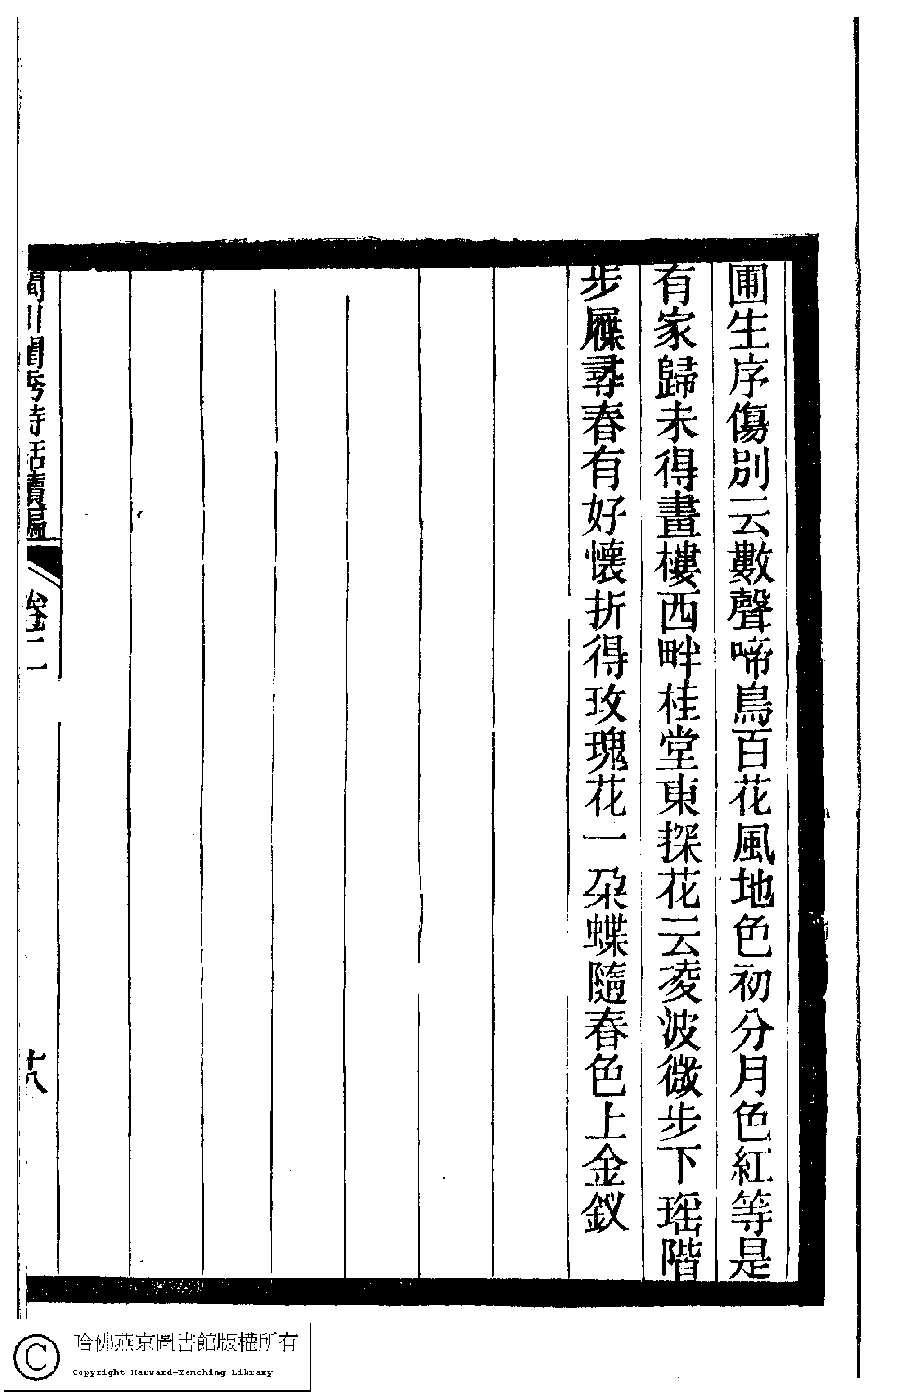 圃生序傷別云數聲啼鳥百花風地色初分月色紅等是
有家歸未得畫樓西畔桂堂東探花云凌波微步下瑤階
步屧尋春有好懷折得玫瑰花一朶蝶隨春色上金釵
閨秀詩話續編
卷二
十八
哈佛燕京圖書館版權所有
Copyright Harvard-Yenching Library